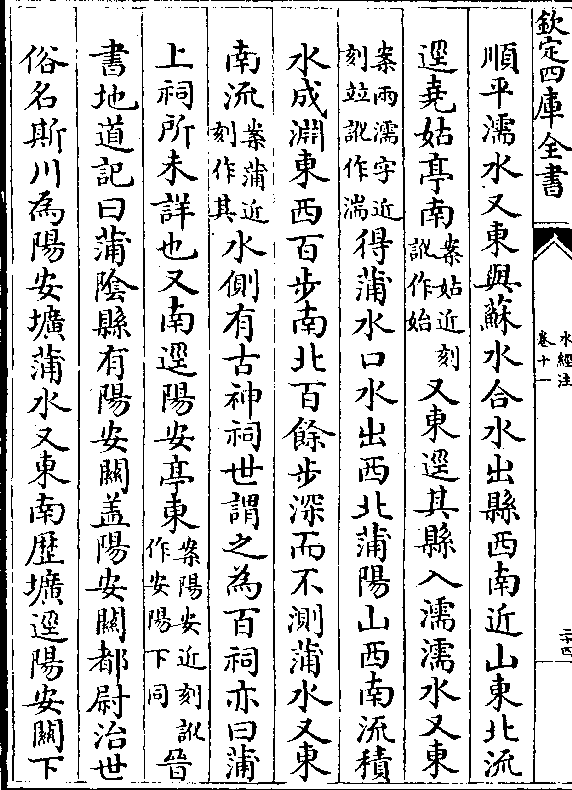 欽定四庫全書
水經注
卷十一
二十四
順平濡水又東與蘇水合水出縣西南近山東北流
逕堯姑亭南案姑近刻訛作始又東逕其縣入濡濡水又東
案兩濡字近刻並訛作湍得蒲水口水出西北蒲陽山西南流積
水成淵東西百步南北百餘步深而不測蒲水又東
南流案蒲近刻作其水側有古神祠世謂之為百祠亦曰蒲
上祠所未詳也又南逕陽安亭東案陽安近刻訛作安陽下同晉
書地道記曰蒲陰縣有陽安關盖陽安關都尉治世
俗名斯川為陽安壙蒲水又東南歷壙逕陽安關下